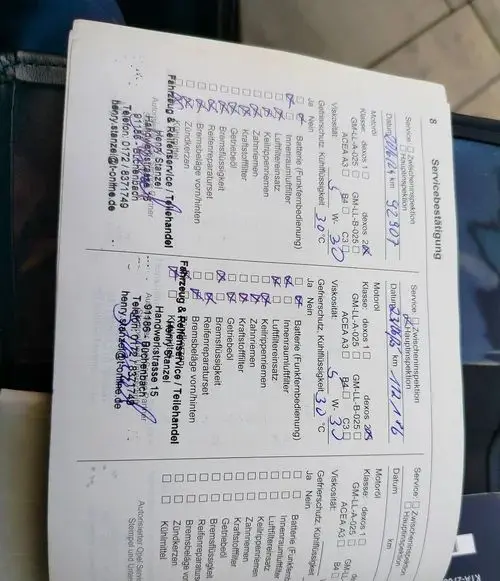 8 Servicebestätigung
Service: Zwischeninspektion
Hauptinspektion
Datum km 92907
Motoröl
Klasse: dexos 1 dexos 2
GM-LL-A-025 GM-LL-B-025
ACEA A3 B4 C3
Viskosität: 5 W- 30
Gefrierschutz, Kühlflüssigkeit 30 °C
Ja Nein
Batterie (Funkfernbedienung)
Innenraumluftfilter
Luftfiltereinsatz
Keilrippenriemen
Zahnriemen
Kraftstofffilter
Getriebeöl
Bremsflüssigkeit
Reifenreparaturset
Bremsbeläge vorn/hinten
Zündkerzen
Fahrzeug & Reifenservice / Teilehandel
Henry Stanzel
Handwerkstrasse 15
91186 - Büchenbach
Telefon: 0172 / 8371149
henry.stanzel@t-online.de
Service: Zwischeninspektion
Hauptinspektion
Datum km 112186
Motoröl
Klasse: dexos 1 dexos
GM-LL-A-025 GM-LL-B-025
ACEA A3 B4 C3
Viskosität: 5 W- 30
Gefrierschutz, Kühlflüssigkeit 30 °C
Ja Nein
Batterie (Funkfernbedienung)
Innenraumluftfilter
Luftfiltereinsatz
Keilrippenriemen
Zahnriemen
Kraftstofffilter
Getriebeöl
Bremsflüssigkeit
Reifenreparaturset
Bremsbeläge vorn/hinten
Fahrzeug & Reifenservice / Teilehandel
Henry Stanzel
Handwerkstrasse 15
91186 - Büchenbach
Telefon: 0172 / 8371149
henry.stanzel@t-online.de
Service: Zwischeninspektion
Hauptinspektion
Datum km
Motoröl
Klasse: dexos
GM-LL-A-025
ACEA A3
Viskosität:
Gefrierschutz, Kühlflüssigkeit
Ja Nein
Batterie (Funkfernbedienung)
Innenraumluftfilter
Luftfiltereinsatz
Keilrippenriemen
Zahnriemen
Kraftstofffilter
Getriebeöl
Bremsflüssigkeit
Reifenreparaturset
Bremsbeläge
Zündkerzen
Kühlmittel
Autorisierter Opel
Stempel und